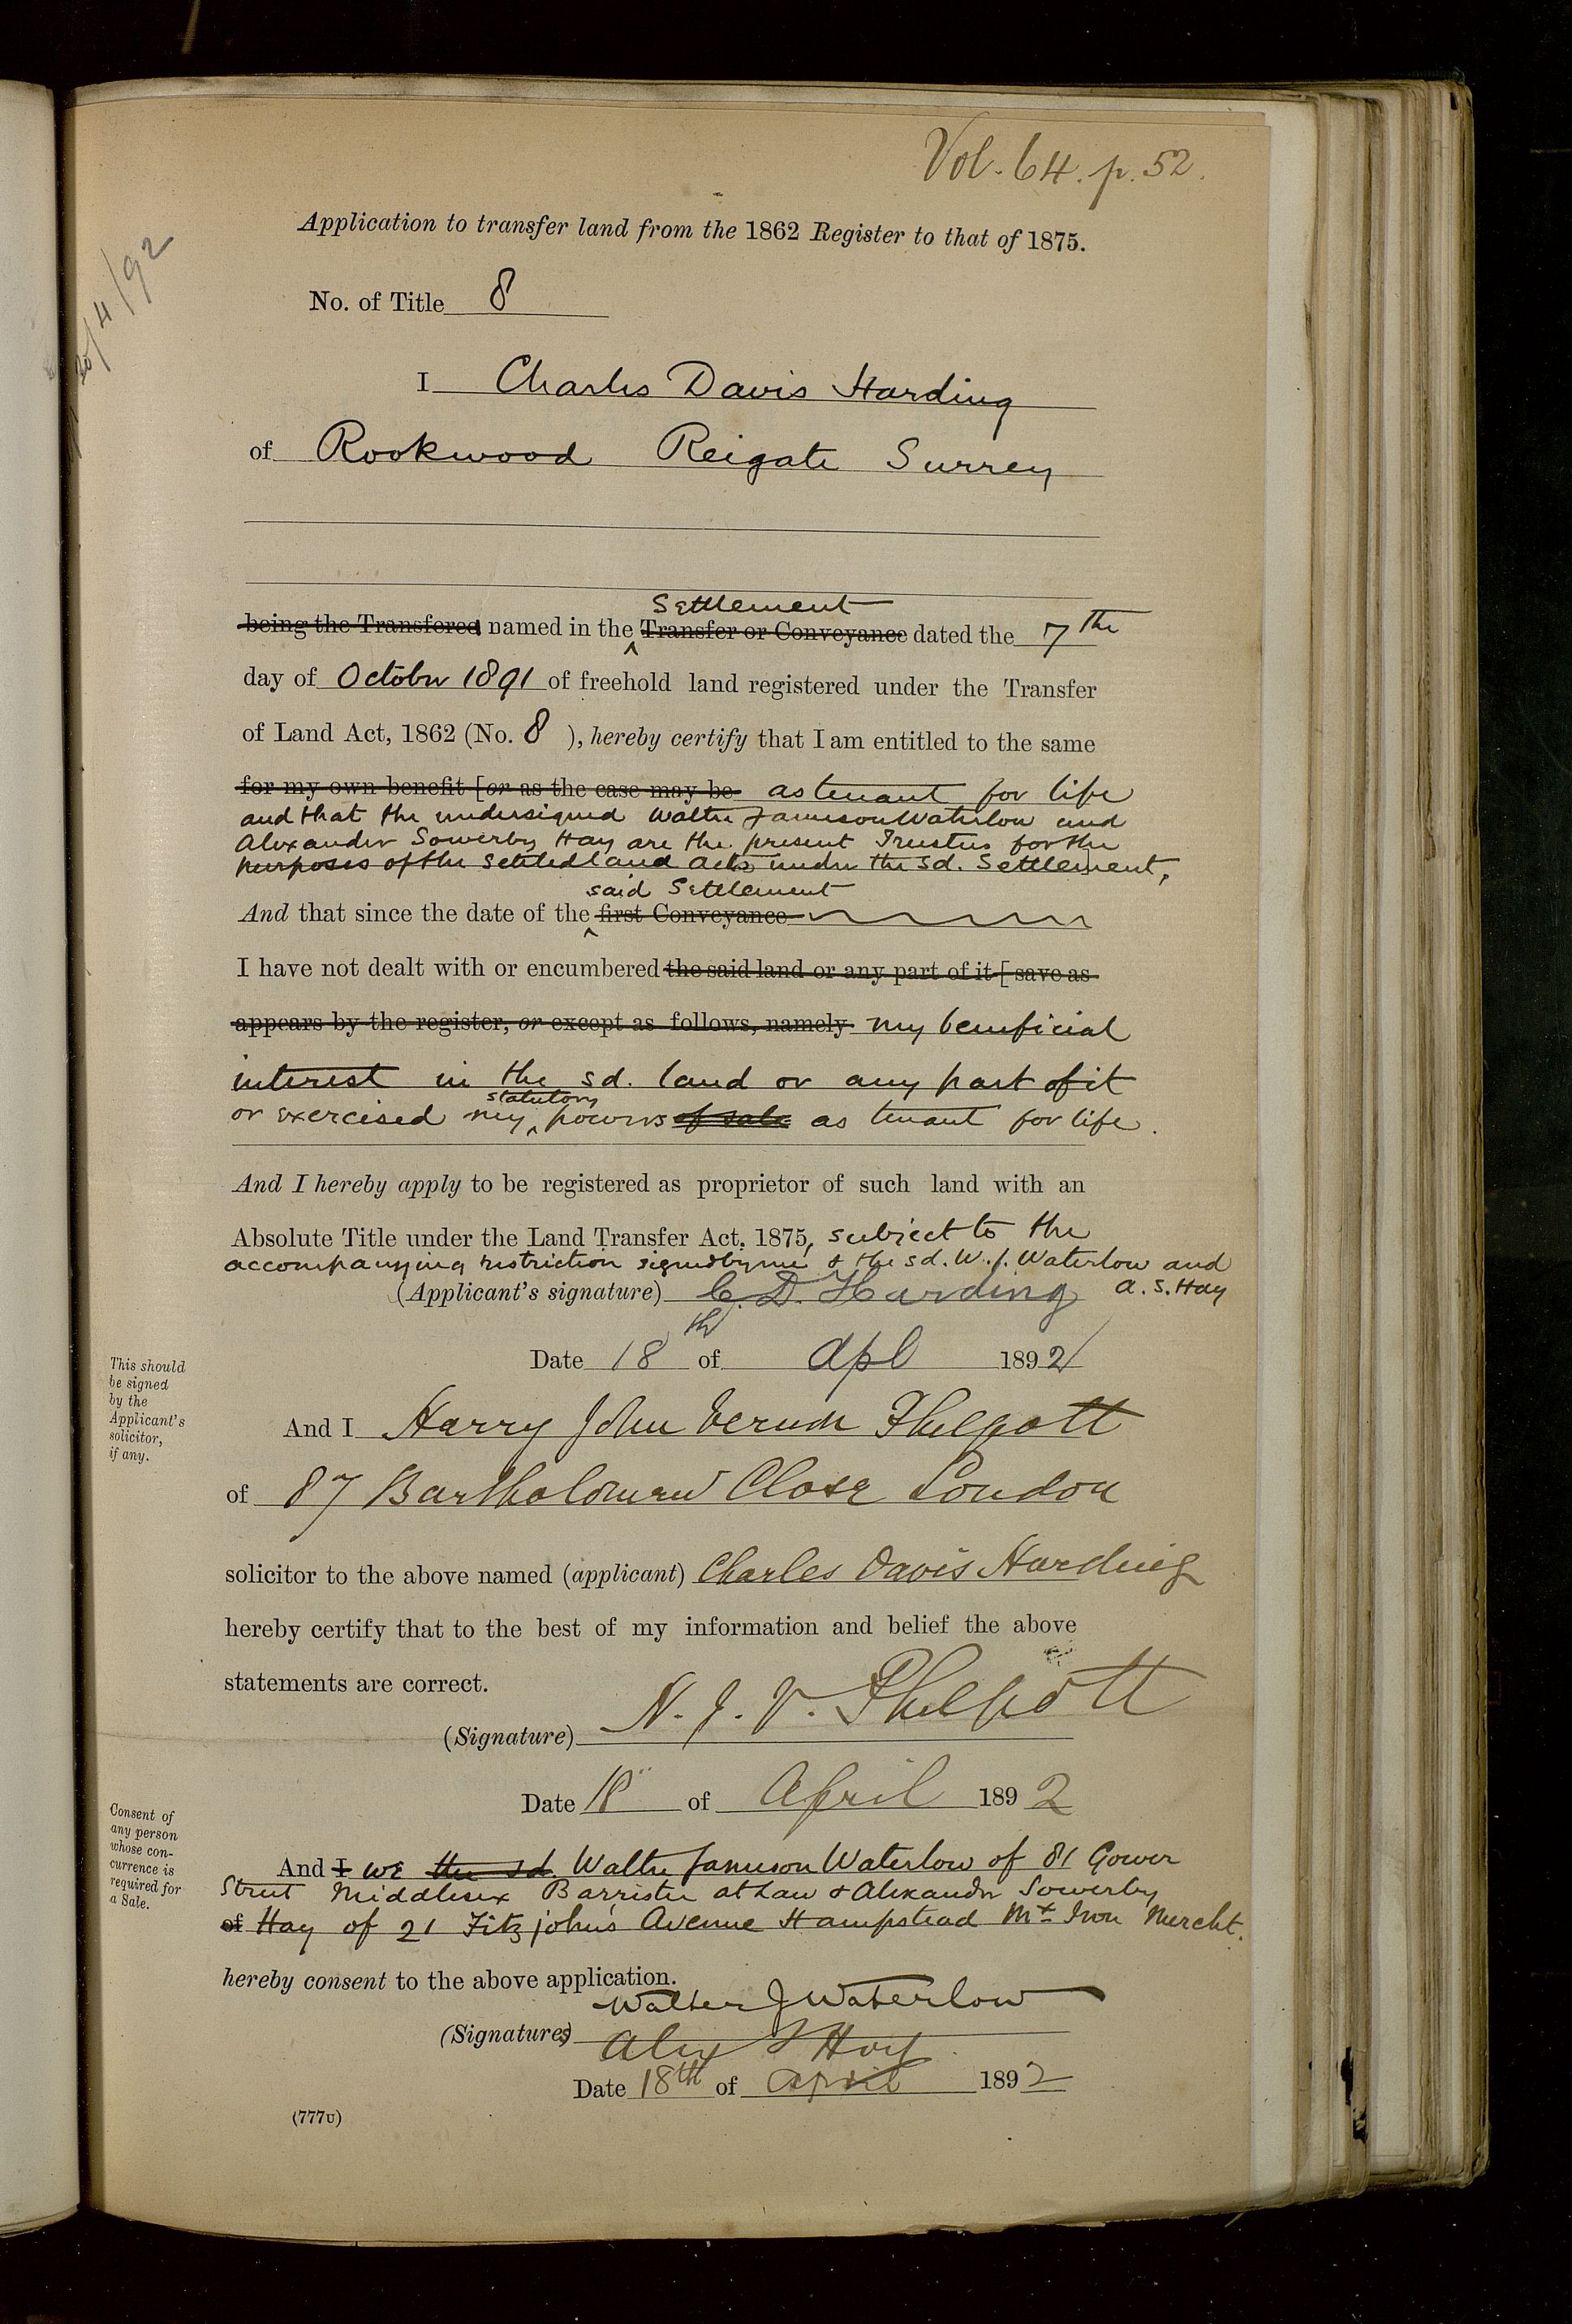 Vol. 64. p. 52.
Application to transfer land from the 1862 Register to that of 1875.
20/4/92
No. of Title 8
I Charles Davis Harding
of Rookwood Reigate Surrey
Settlement
being the Transferee named in the ^ Transfer or Conveyance dated the 7th
day of October 1891 of freehold land registered under the Transfer
of Land Act, 1862 (No. 8 ), hereby certify that I am entitled to the same
for my own benefit [or as the case may be as tenant for life
and that the undersigned Walter Jameson Waterlow and
Alexander Sowerby Hay are the present Trustees for the
purposes of the Settled Land Acts under the sd. Settlement,
said Settlement
And that since the date of the ^ first Conveyance
I have not dealt with or encumbered the said land or any part of it [save as
appears by the register, or except as follows, namely my beneficial
interest in the sd. land or any part of it
statutory
or exercised my ^ powers of sale as tenant for life.
And I hereby apply to be registered as proprietor of such land with an
Absolute Title under the Land Transfer Act, 1875, subject to the
accompanying restriction signed by me & the sd. W. J. Waterlow and
A. S. Hay
(Applicant's signature) C. D. Harding
Date 18th of Apl 1892
This should
be signed
by the
Applicant's
solicitor,
if any.
And I Harry John Vernon Philpott
of 87 Bartholomew Close London
solicitor to the above named (applicant) Charles Davis Harding
hereby certify that to the best of my information and belief the above
statements are correct.
(Signature) H. J. V. Philpott
Date 18" of April 1892
Consent of
any person
whose con-
currence is
required for
a Sale.
And I we the sd. Walter Jameson Waterlow of 81 Gower
Street Middlesex Barrister at Law & Alexander Sowerby
of Hay of 21 Fitzjohn's Avenue Hampstead Mx Iron Mercht.
hereby consent to the above application.
Walter J Waterlow
(Signatures)
Alex S Hay
Date 18th of April 1892
(777U)